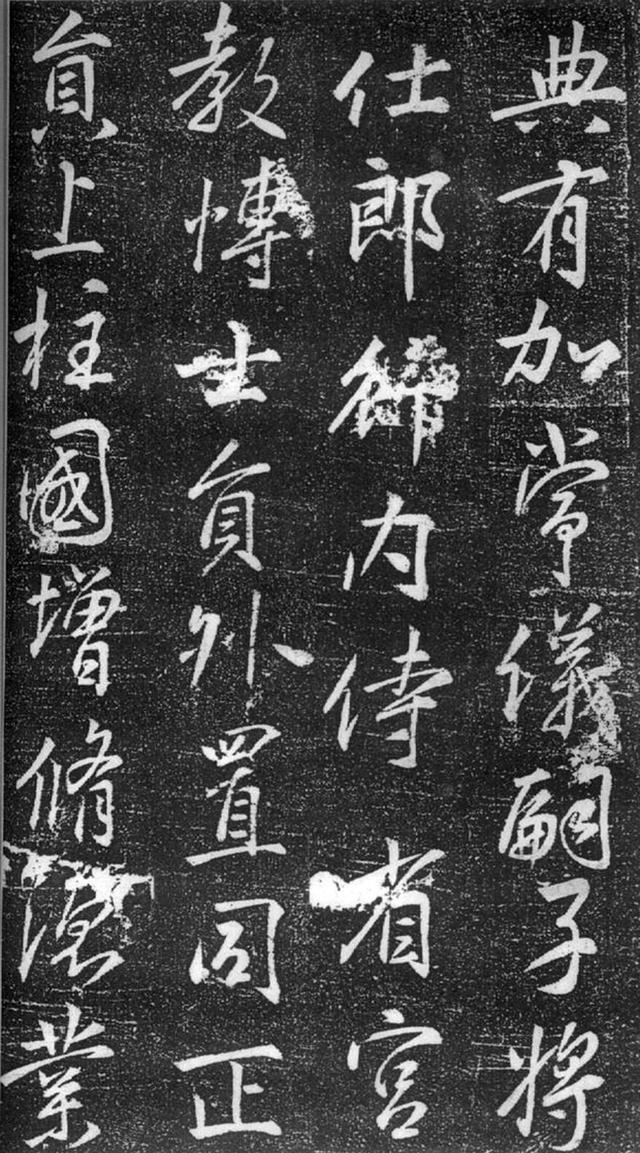 典有加常儀嗣子將
仕郎內侍省宮
教博士員外置同正
員上柱國增脩德業